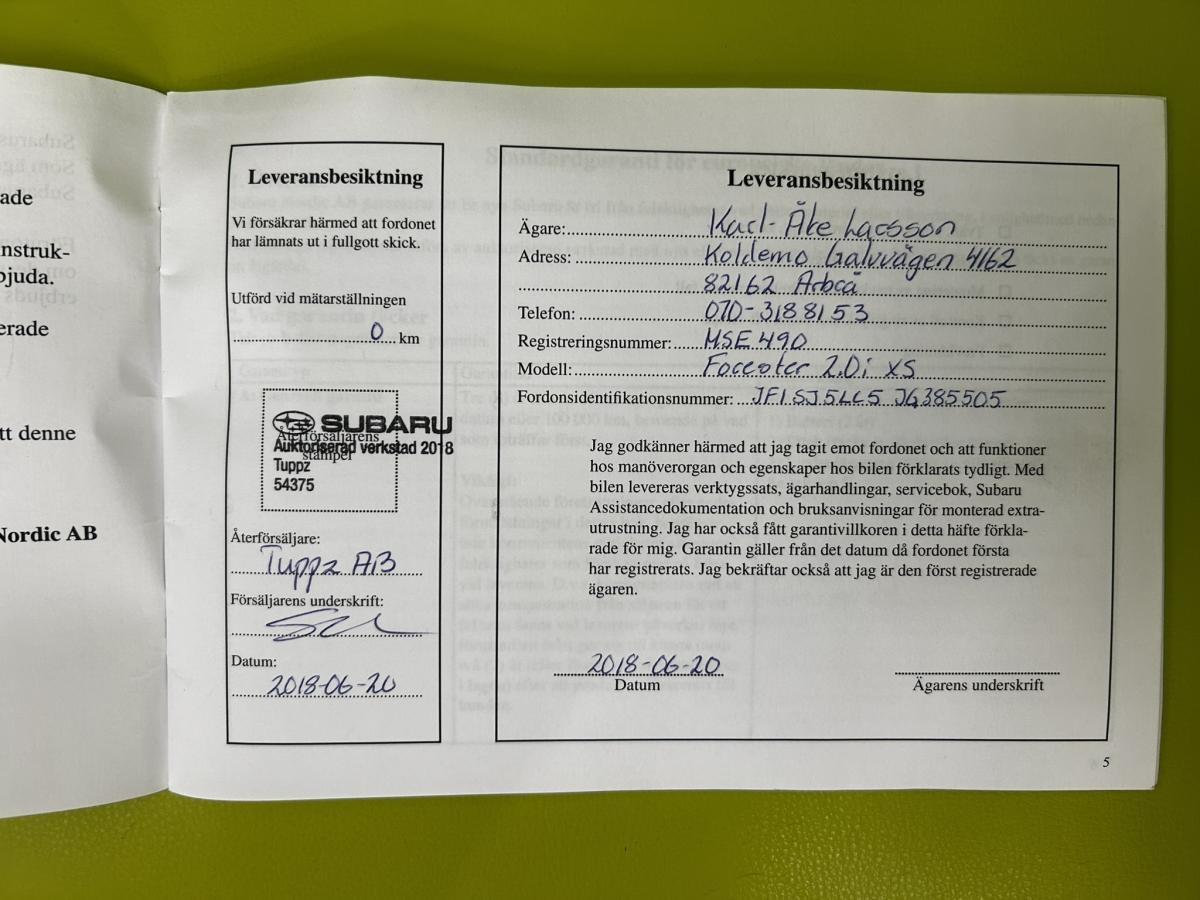 ade
nstruk-
bjuda.
erade
tt denne
Nordic AB
Leveransbesiktning
Vi försäkrar härmed att fordonet
har lämnats ut i fullgott skick.
Utförd vid mätarställningen
0 km
SUBARU
Återförsäljarens
stämpel
Auktoriserad verkstad 2018
Tuppz
54375
Återförsäljare:
Tuppz AB
Försäljarens underskrift:
Datum:
2018-06-20
Leveransbesiktning
Ägare: Karl-Åke Larsson
Adress: Koldemo Galvvägen 4162
82162 Arbrå
Telefon: 070-3188153
Registreringsnummer: MSE490
Modell: Forester 2.0i XS
Fordonsidentifikationsnummer: JF1SJ5LC5JG385505
Jag godkänner härmed att jag tagit emot fordonet och att funktioner
hos manöverorgan och egenskaper hos bilen förklarats tydligt. Med
bilen levereras verktygssats, ägarhandlingar, servicebok, Subaru
Assistancedokumentation och bruksanvisningar för monterad extra-
utrustning. Jag har också fått garantivillkoren i detta häfte förkla-
rade för mig. Garantin gäller från det datum då fordonet första
har registrerats. Jag bekräftar också att jag är den först registrerade
ägaren.
2018-06-20
Datum
Ägarens underskrift
5